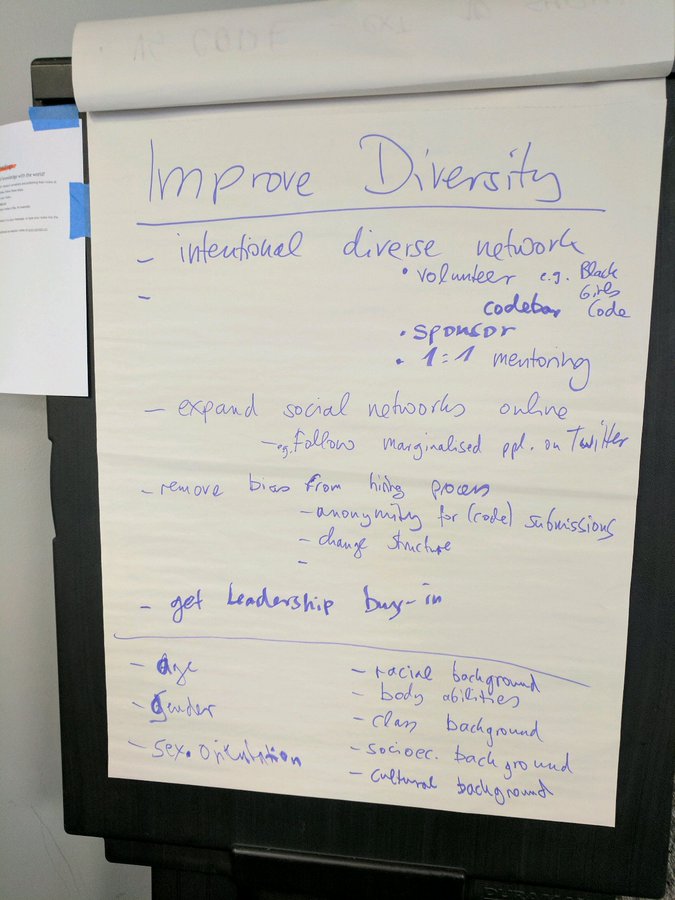 Improve Diversity
- intentional diverse network
• volunteer e.g. Black
Girls
codebar Code
-
• sponsor
• 1:1 mentoring
- expand social networks online
- eg. Follow marginalised ppl. on Twitter
- remove bias from hiring process
- anonymity for (code) submissions
- change structure
-
- get Leadership buy-in
- Age
- Gender
- sex. orientation
- racial background
- body abilities
- class background
- socioec. background
- cultural background